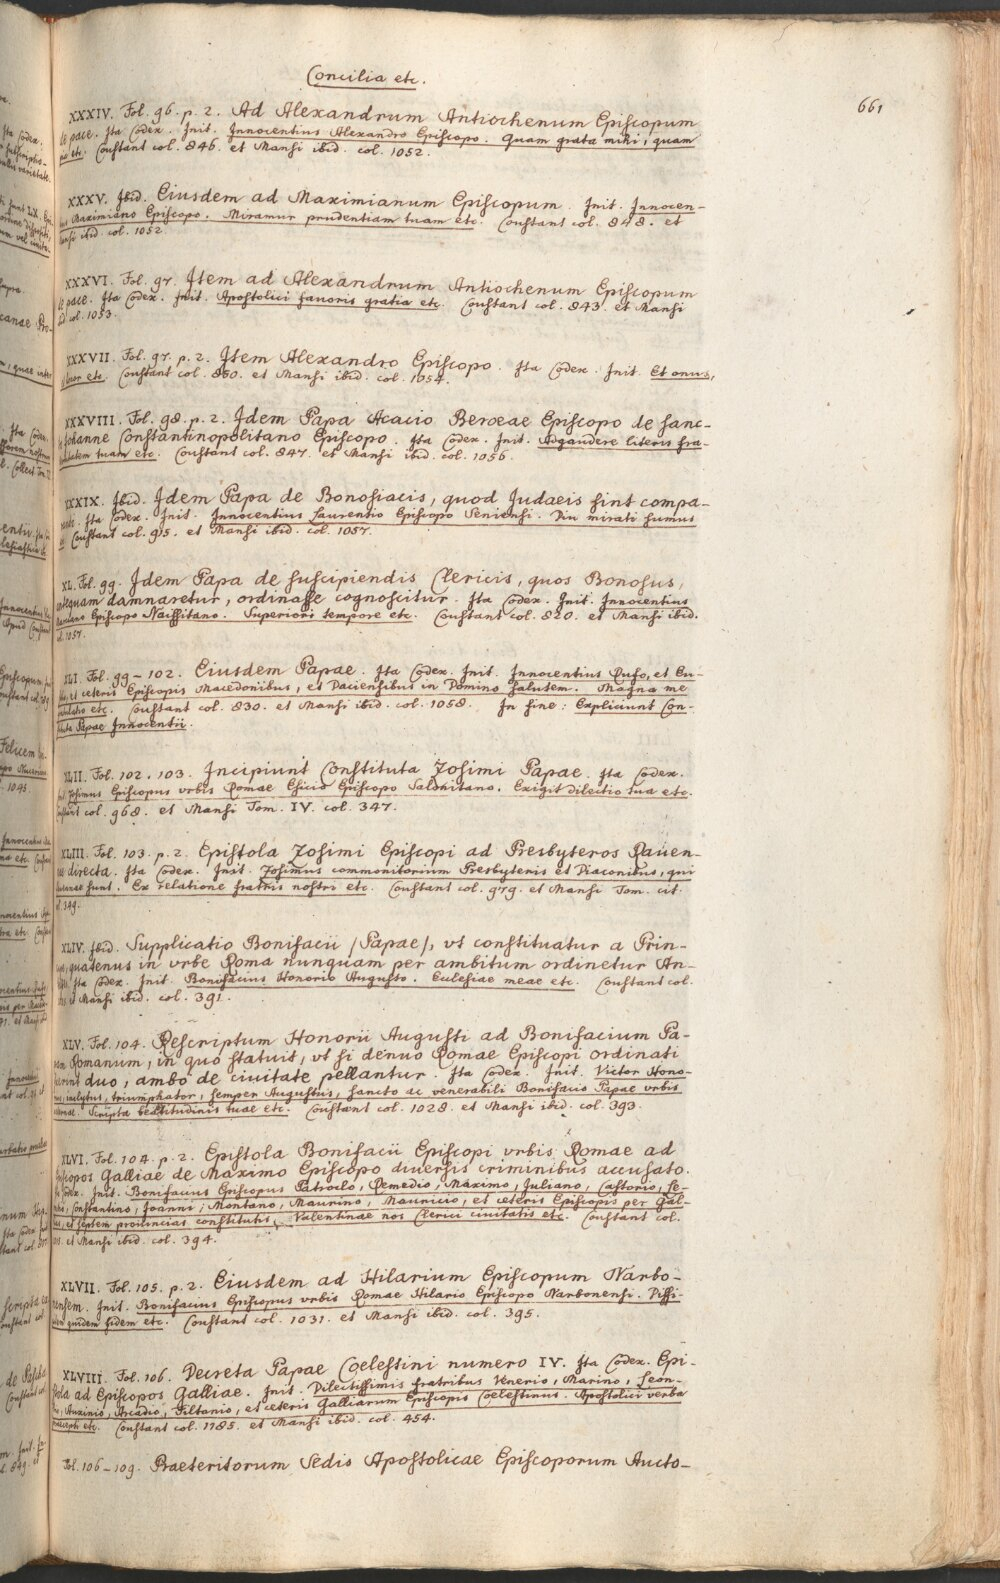 Concilia etc.
661
XXXIV. Fol. 96. p. 2. Ad Alexandrum Antiochenum Episcopum
de pace. Ita Codex. Init. Innocentius Alexandro Episcopo. Quam grata mihi, quam
etc. Coustant col. 846. et Mansi ibid. col. 1052.
XXXV. Ibid. Eiusdem ad Maximianum Episcopum. Init. Innocen-
tius Maximiano Episcopo. Miramur prudentiam tuam etc. Coustant col. 848. et
Mansi ibid. col. 1052.
XXXVI. Fol. 97. Item ad Alexandrum Antiochenum Episcopum
de pace. Ita Codex. Init. Apostolici fauoris gratia etc. Coustant col. 843. et Mansi
ibid. col. 1053.
XXXVII. Fol. 97. p. 2. Item Alexandro Episcopo. Ita Codex. Init. Et onus,
etc. Coustant col. 850. et Mansi ibid. col. 1054.
XXXVIII. Fol. 98. p. 2. Idem Papa Acacio Beroeae Episcopo de sanc-
Iohanne Constantinopolitano Episcopo. Ita Codex. Init. Adgaudere literis fra-
tuam etc. Coustant col. 847. et Mansi ibid. col. 1056.
XXXIX. Ibid. Idem Papa de Bonosiacis, quod Judaeis sint compa-
Ita Codex. Init. Innocentius Laurentio Episcopo Seniensi. Diu mirati sumus
Coustant col. 915. et Mansi ibid. col. 1057.
XL. Fol. 99. Idem Papa de suscipiendis Clericis, quos Bonosus,
antequam damnaretur, ordinasse cognoscitur. Ita Codex. Init. Innocentius
Marciano Episcopo Naissitano. Superiori tempore etc. Coustant col. 820. et Mansi ibid.
col. 1057.
XLI. Fol. 99–102. Eiusdem Papae. Ita Codex. Init. Innocentius Rufo, et Eu-
et ceteris Episcopis Macedonibus, et Daciensibus in Domino salutem. Magna me
etc. Coustant col. 830. et Mansi ibid. col. 1058. In fine: Expliciunt Con-
stituta Papae Innocentii.
XLII. Fol. 102. 103. Incipiunt Constituta Zosimi Papae. Ita Codex.
Init. Zosimus Episcopus vrbis Romae Esicio Episcopo Salonitano. Exigit dilectio tua etc.
Coustant col. 968. et Mansi Tom. IV. col. 347.
XLIII. Fol. 103. p. 2. Epistola Zosimi Episcopi ad Presbyteros Rauen-
directa. Ita Codex. Init. Zosimus commonitorium Presbyteris et Diaconibus, qui
Rauennae sunt. Ex relatione fratris nostri etc. Coustant col. 979. et Mansi Tom. cit.
col. 349.
XLIV. Ibid. Supplicatio Bonifacii (Papae), vt constituatur a Prin-
quatenus in vrbe Roma nunquam per ambitum ordinetur An-
Ita Codex. Init. Bonifacius Honorio Augusto. Ecclesiae meae etc. Coustant col.
et Mansi ibid. col. 391.
XLV. Fol. 104. Rescriptum Honorii Augusti ad Bonifacium Pa-
pam Romanum, in quo statuit, vt si denuo Romae Episcopi ordinati
fuerint duo, ambo de ciuitate pellantur. Ita Codex. Init. Victor Hono-
rius, inclytus, triumphator, semper Augustus, sancto ac venerabili Bonifacio Papae vrbis
Scripta beatitudinis tuae etc. Coustant col. 1028. et Mansi ibid. col. 393.
XLVI. Fol. 104. p. 2. Epistola Bonifacii Episcopi vrbis Romae ad
Episcopos Galliae de Maximo Episcopo diuersis criminibus accusato.
Ita Codex. Init. Bonifacius Episcopus Patroclo, Remedio, Maximo, Juliano, Castorio, Se-
Constantino, Joanni, Montano, Maurino, Mauricio, et ceteris Episcopis per Gal-
lias, et septem prouincias constitutis. Valentinae nos Clerici ciuitatis etc. Coustant col.
et Mansi ibid. col. 394.
XLVII. Fol. 105. p. 2. Eiusdem ad Hilarium Episcopum Narbo-
nensem. Init. Bonifacius Episcopus vrbis Romae Hilario Episcopo Narbonensi. Diffi-
quidem fidem etc. Coustant col. 1031. et Mansi ibid. col. 395.
XLVIII. Fol. 106. Decreta Papae Coelestini numero IV. Ita Codex. Epi-
stola ad Episcopos Galliae. Init. Dilectissimis fratribus Venerio, Marino, Leon-
tio, Auxinio, Arcadio, Filtanio, et ceteris Galliarum Episcopis Coelestinus. Apostolici verba
praecepti etc. Coustant col. 1785. et Mansi ibid. col. 454.
Fol. 106–109. Praeteritorum Sedis Apostolicae Episcoporum Aucto-